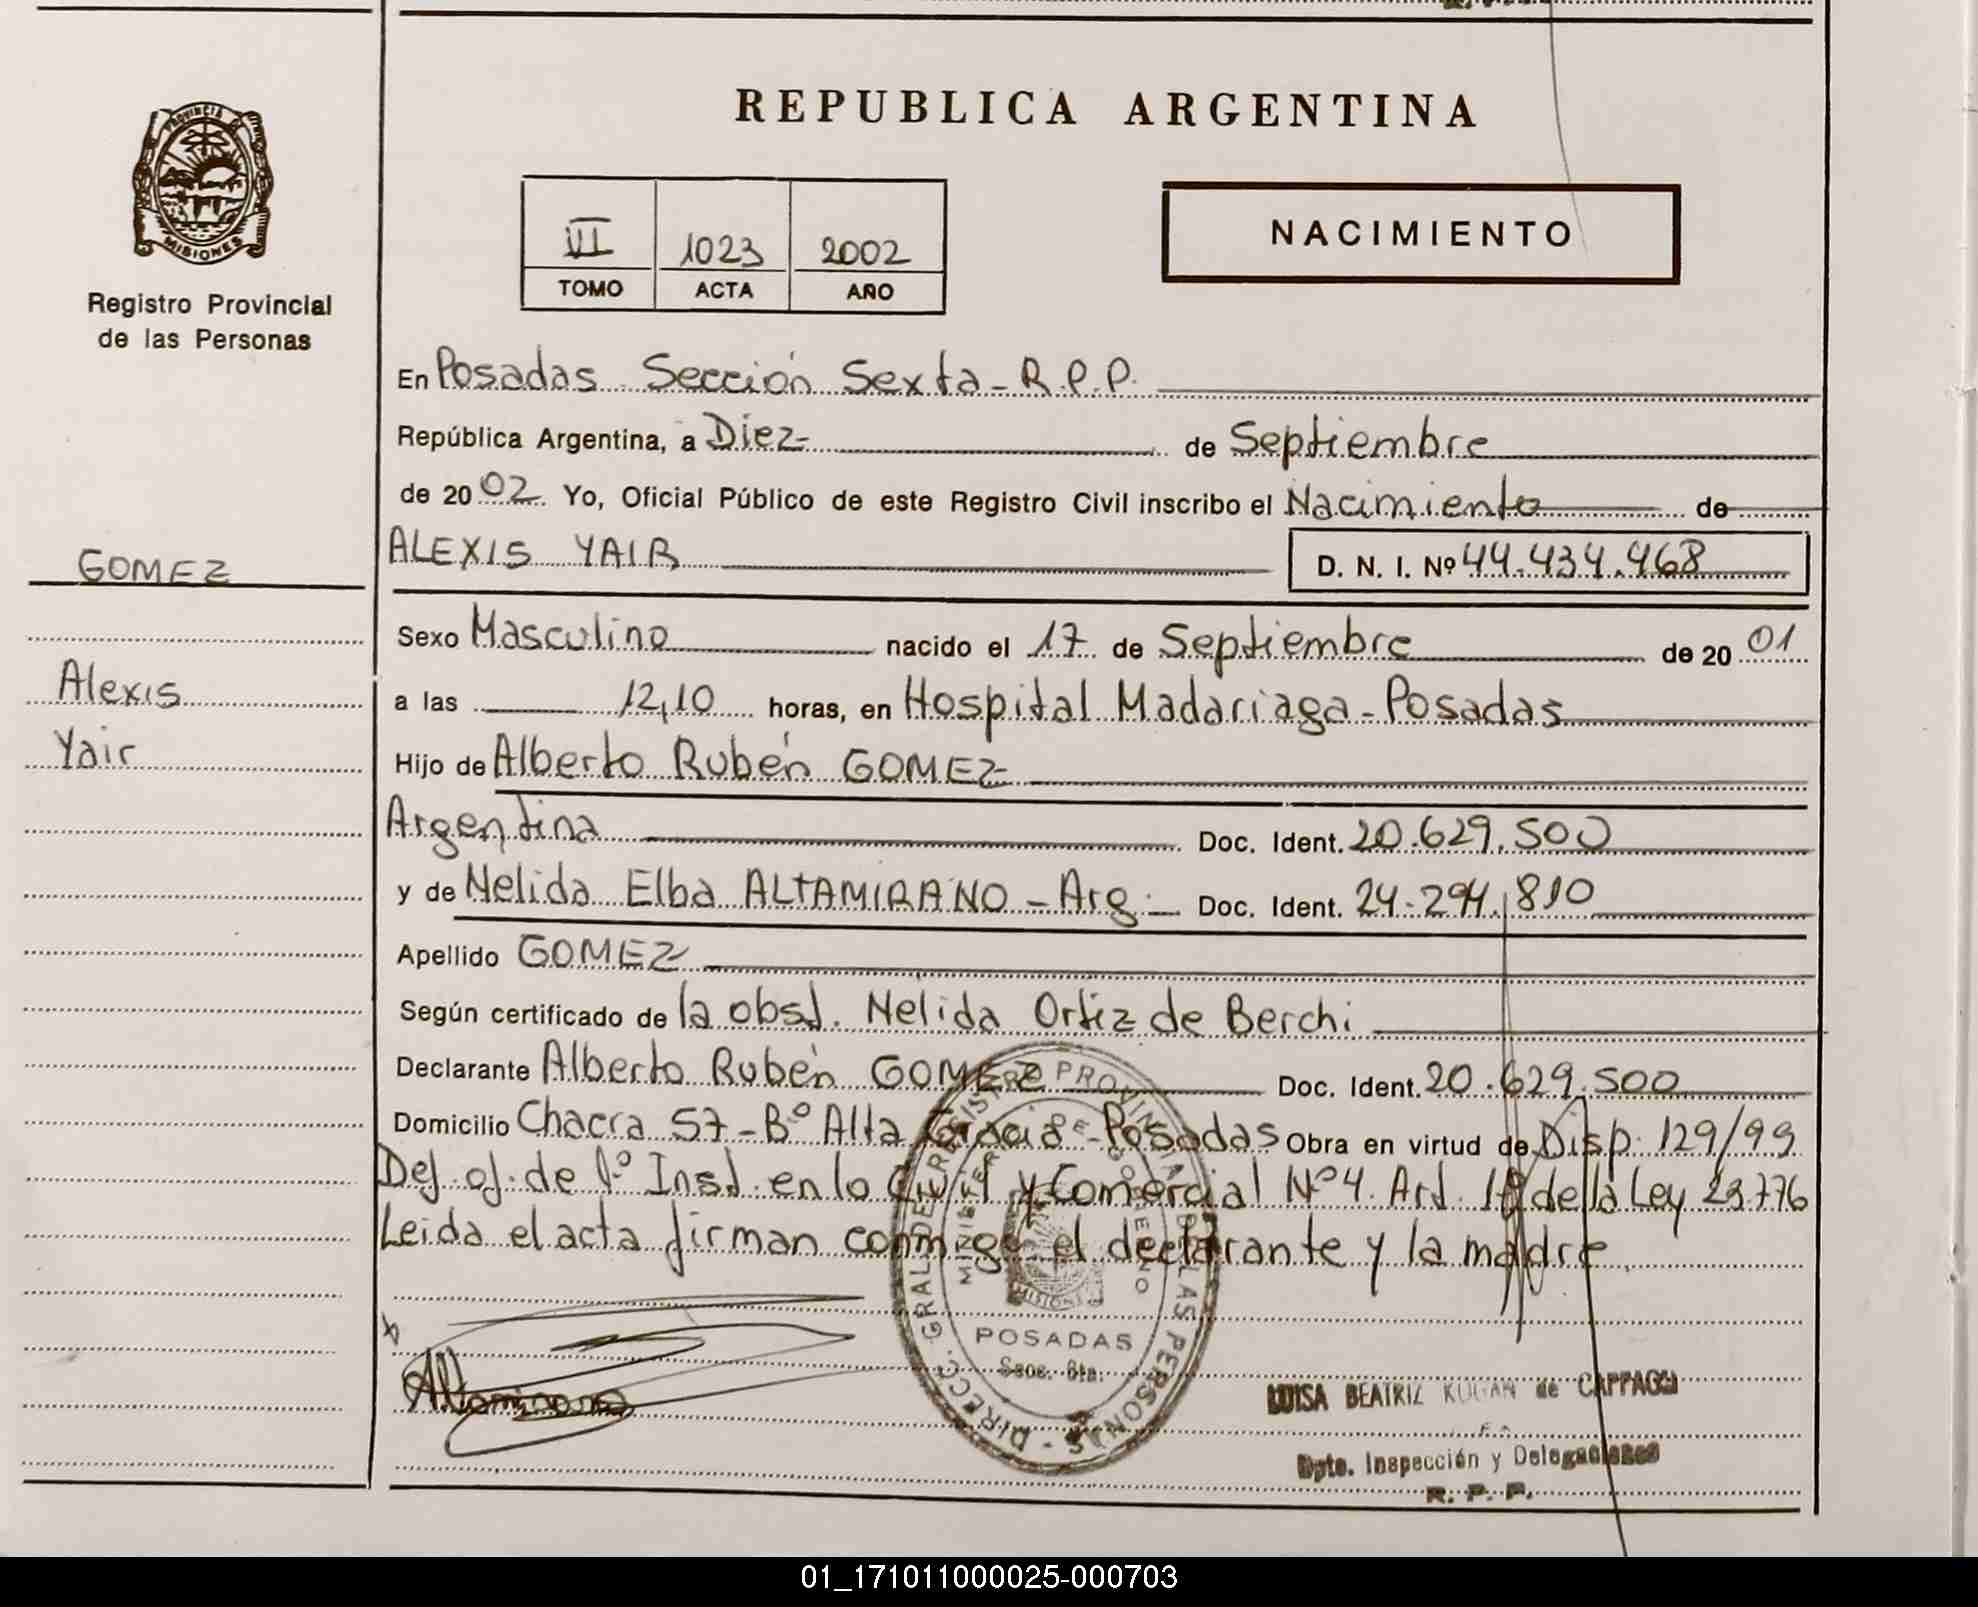 PROVINCIA DE
MISIONES
Registro Provincial
de las Personas
GOMEZ
Alexis
Yair
REPUBLICA ARGENTINA
VI 1023 2002
TOMO ACTA AÑO
NACIMIENTO
En Posadas Sección Sexta - R.P.P.
República Argentina, a Diez de Septiembre
de 2002 Yo, Oficial Público de este Registro Civil inscribo el Nacimiento de
ALEXIS YAIR D. N. I. Nº 44.434.468
Sexo Masculino nacido el 17 de Septiembre de 2001
a las 12,10 horas, en Hospital Madariaga - Posadas
Hijo de Alberto Rubén GOMEZ
Argentina Doc. Ident. 20.629.500
y de Nelida Elba ALTAMIRANO - Arg. Doc. Ident. 24.294.810
Apellido GOMEZ
Según certificado de la obst. Nelida Ortiz de Berchi
Declarante Alberto Rubén GOMEZ Doc. Ident. 20.629.500
Domicilio Chacra 57 - Bº Alta Gracia - Posadas Obra en virtud de Disp. 129/99
Def. of. de 1º Inst. en lo Civil y Comercial Nº 4. Art. 1º de la Ley 23.776
Leida el acta firman conmigo el declarante y la madre
DIRECC. GRAL. DE REGISTRO PROVINCIAL DE LAS PERSONAS
MINISTERIO DE GOBIERNO
MISIONES
POSADAS
Secc. 6ta.
Altamirano
LUISA BEATRIZ KUGAN de CAPPAGGI
Dpto. Inspección y Delegaciones
R. P. P.
01_171011000025-000703